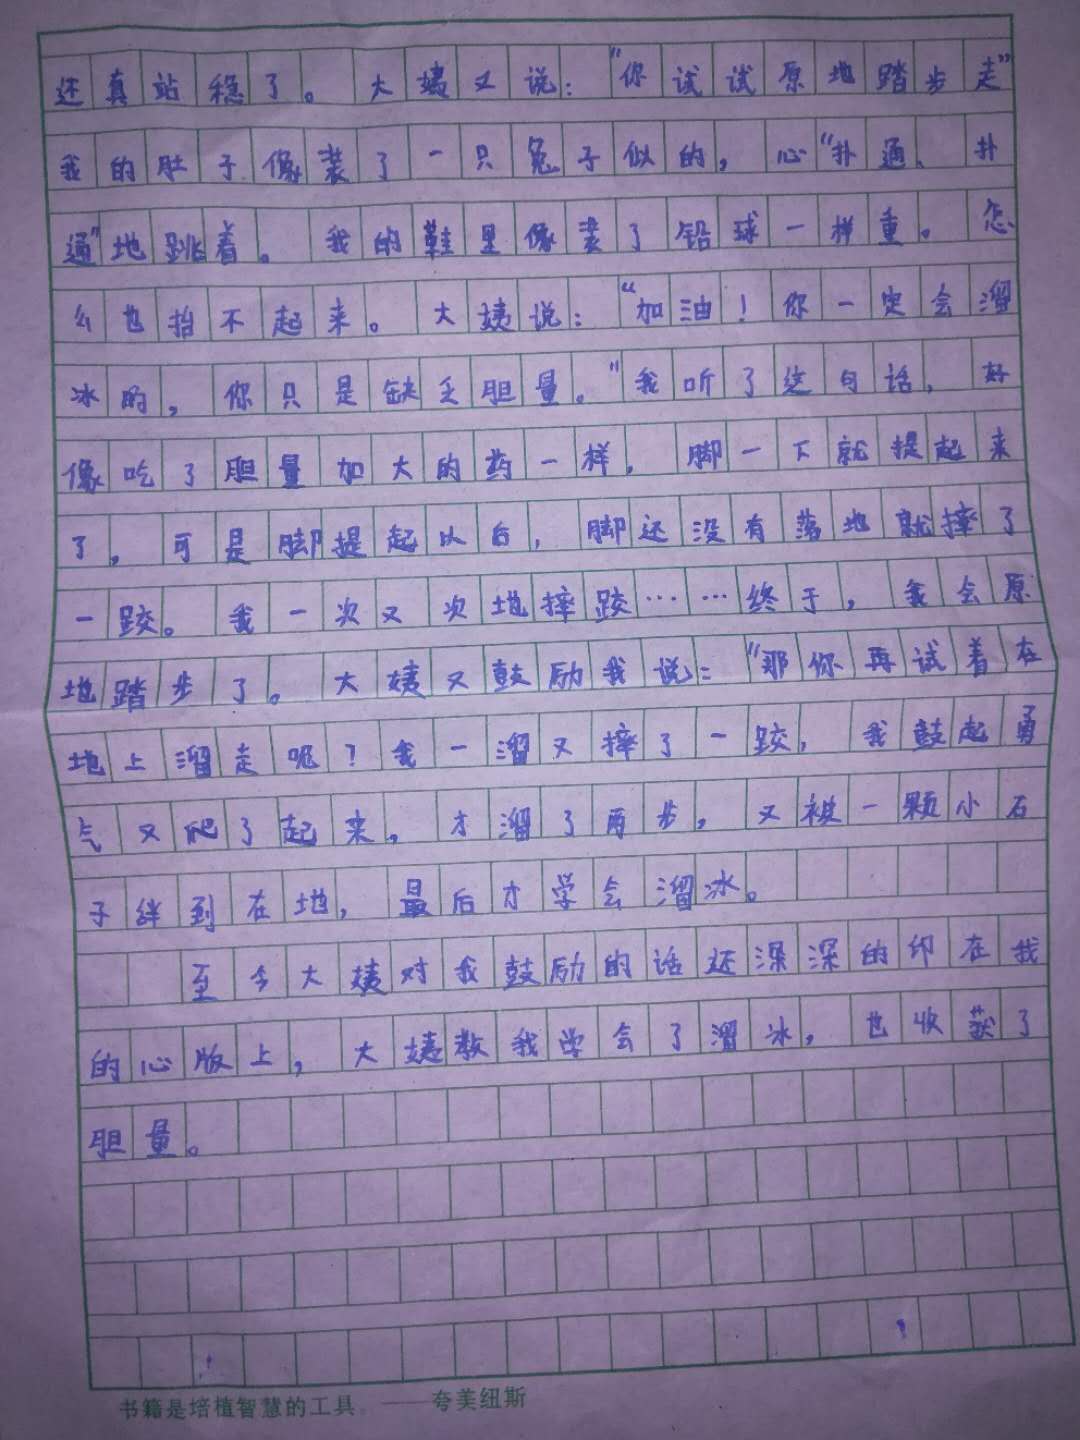 还真站稳了。大姨又说：“你试试原地踏步走”
我的肚子像装了一只兔子似的，心“扑通、扑
通”地跳着。我的鞋里像装了铅球一样重。怎
么也抬不起来。大姨说：“加油！你一定会溜
冰的，你只是缺乏胆量。”我听了这句话，好
像吃了胆量加大的药一样，脚一下就提起来
了，可是脚提起以后，脚还没有落地就摔了
一跤。我一次又次地摔跤……终于，我会原
地踏步了。大姨又鼓励我说：“那你再试着在
地上溜走呃？我一溜又摔了一跤，我鼓起勇
气又爬了起来，才溜了两步，又被一颗小石
子绊到在地，最后才学会溜冰。
至今大姨对我鼓励的话还深深的印在我
的心版上，大姨教我学会了溜冰，也收获了
胆量。
书籍是培植智慧的工具 ——夸美纽斯